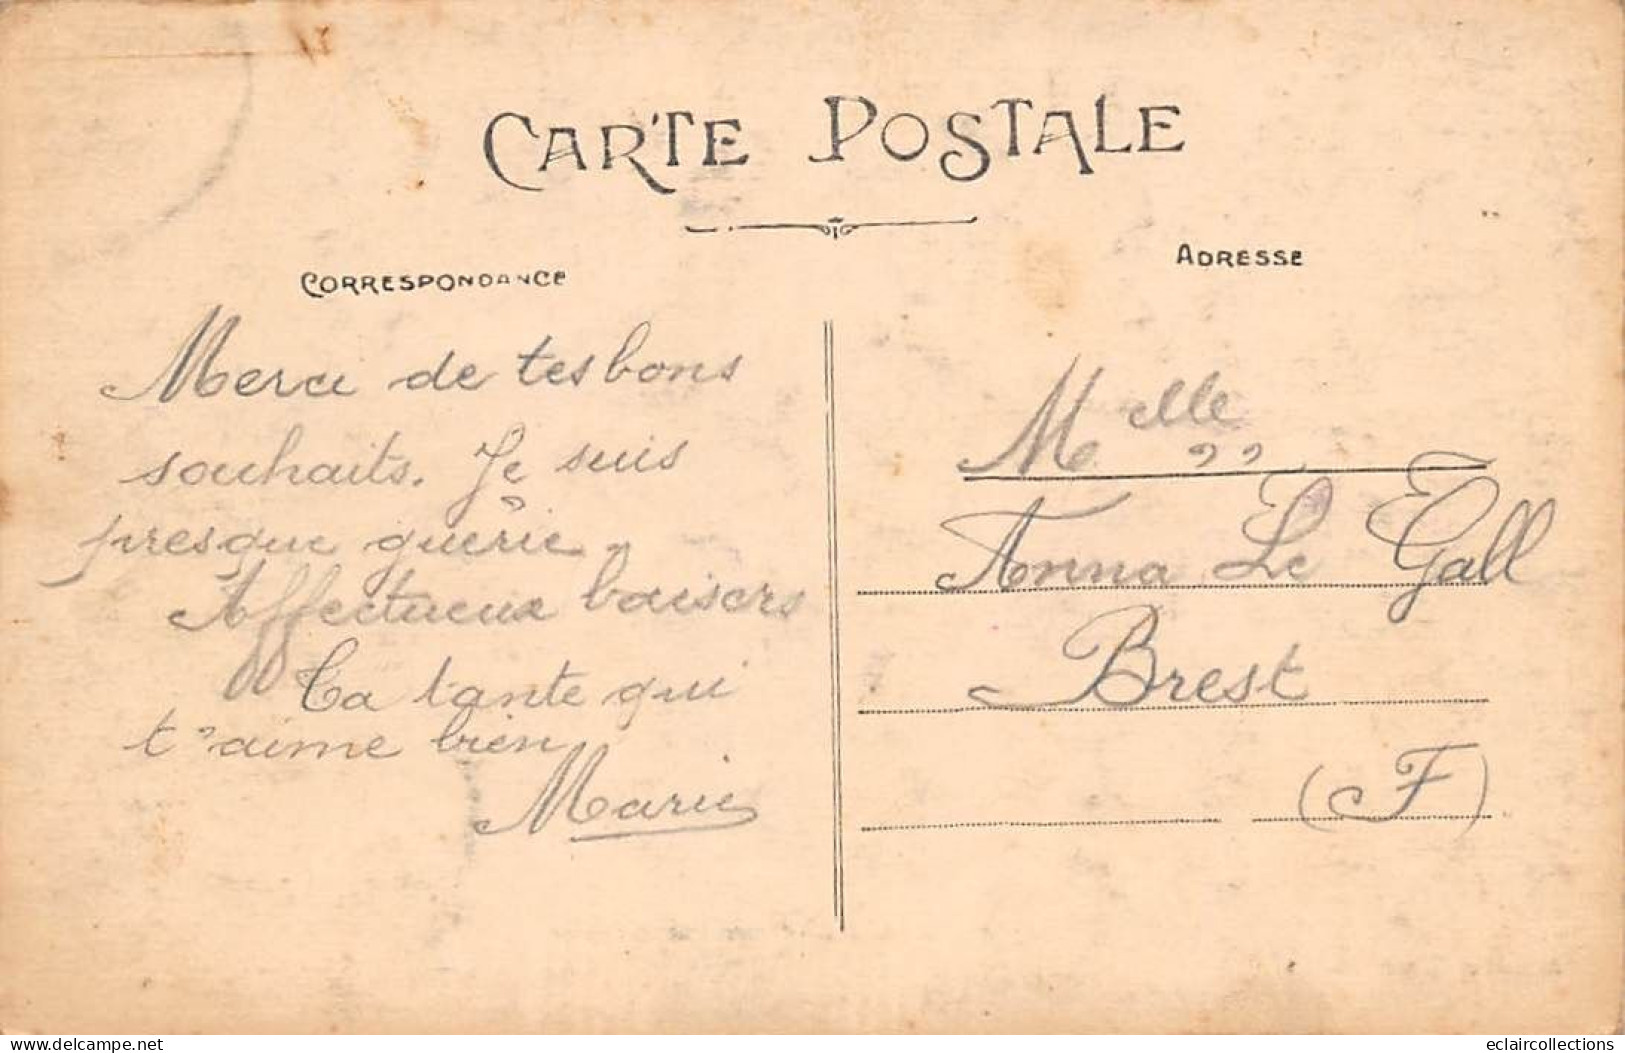 CARTE POSTALE
CORRESPONDANCE
ADRESSE
Merci de tes bons
souhaits. Je suis
presque guérie.
Affectueux baisers
Ta tante qui
t'aime bien
Marie
Melle
Anna Le Gall
Brest
(F)
www.delcampe.net
eclaircollections